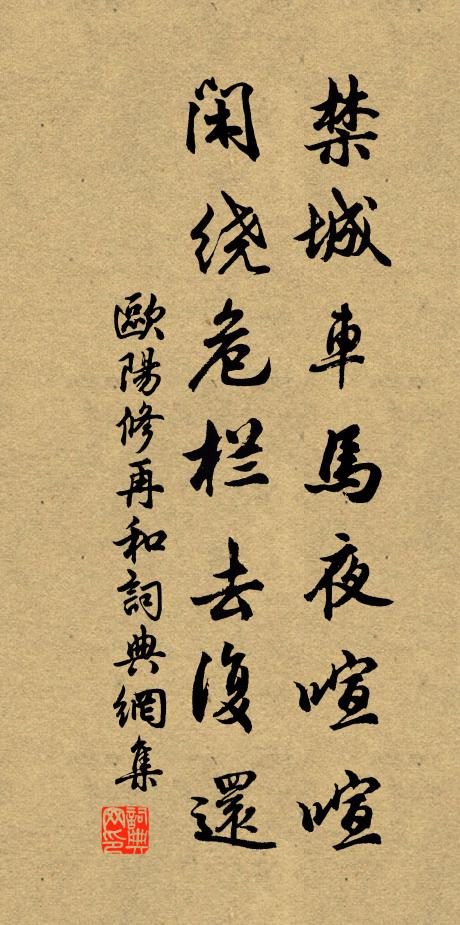 禁城車馬夜喧喧
閑绕危栏去復還
歐陽修再和詞典網集
詞典网印